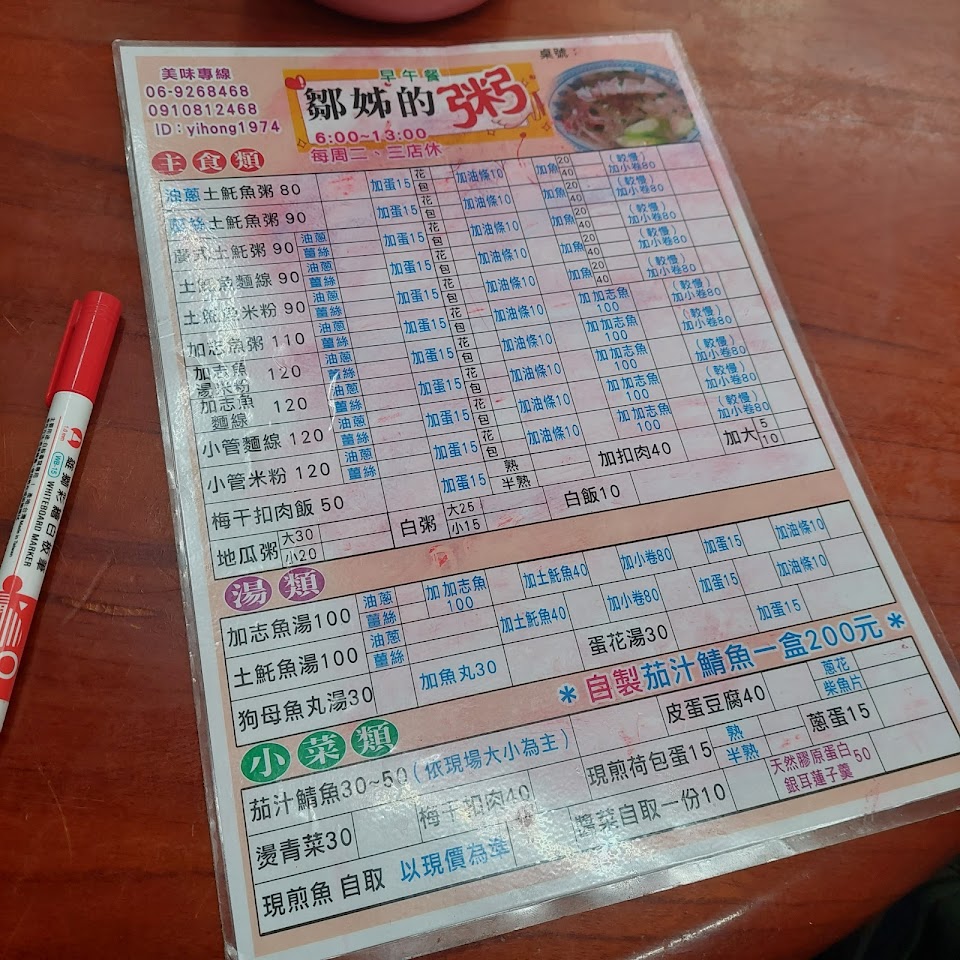 桌號：
美味專線
06-9268468
0910812468
ID：yihong1974
早午餐
鄒姊的粥
6:00~13:00
每周二、三店休
主食類
油蔥土魠魚粥 80 加蛋15 花 包 加油條10 加魚 20 40 (較慢) 加小卷80
薑絲土魠魚粥 90 加蛋15 花 包 加油條10 加魚 20 40 (較慢) 加小卷80
廣式土魠粥 90 油蔥 薑絲 加蛋15 花 包 加油條10 加魚 20 40 (較慢) 加小卷80
土魠魚麵線 90 油蔥 薑絲 加蛋15 花 包 加油條10 加魚 20 40 (較慢) 加小卷80
土魠魚米粉 90 油蔥 薑絲 加蛋15 花 包 加油條10 加魚 20 40 (較慢) 加小卷80
加志魚粥 110 油蔥 薑絲 加蛋15 花 包 加油條10 加加志魚 100 (較慢) 加小卷80
加志魚湯米粉 120 油蔥 薑絲 加蛋15 花 包 加油條10 加加志魚 100 (較慢) 加小卷80
加志魚麵線 120 油蔥 薑絲 加蛋15 花 包 加油條10 加加志魚 100 (較慢) 加小卷80
小管麵線 120 油蔥 薑絲 加蛋15 花 包 加油條10 加加志魚 100 (較慢) 加小卷80
小管米粉 120 油蔥 薑絲 加蛋15 花 包 加油條10 加加志魚 100 (較慢) 加小卷80
梅干扣肉飯 50 加蛋15 熟 半熟 加扣肉40 加大 5 10
地瓜粥 大30 小20 白粥 大25 小15 白飯10
湯類
加志魚湯100 油蔥 薑絲 加加志魚 100 加土魠魚40 加小卷80 加蛋15 加油條10
土魠魚湯100 油蔥 薑絲 加土魠魚40 加小卷80 加蛋15 加油條10
狗母魚丸湯30 加魚丸30 蛋花湯30 加蛋15
＊自製茄汁鯖魚一盒200元＊
小菜類
茄汁鯖魚30~50(依現場大小為主) 皮蛋豆腐40 蔥花 柴魚片
燙青菜30 梅干扣肉40 現煎荷包蛋15 熟 半熟 蔥蛋15
現煎魚 自取 以現價為準 醬菜自取一份10 天然膠原蛋白 銀耳蓮子羹 50
WHITEBOARD MARKER